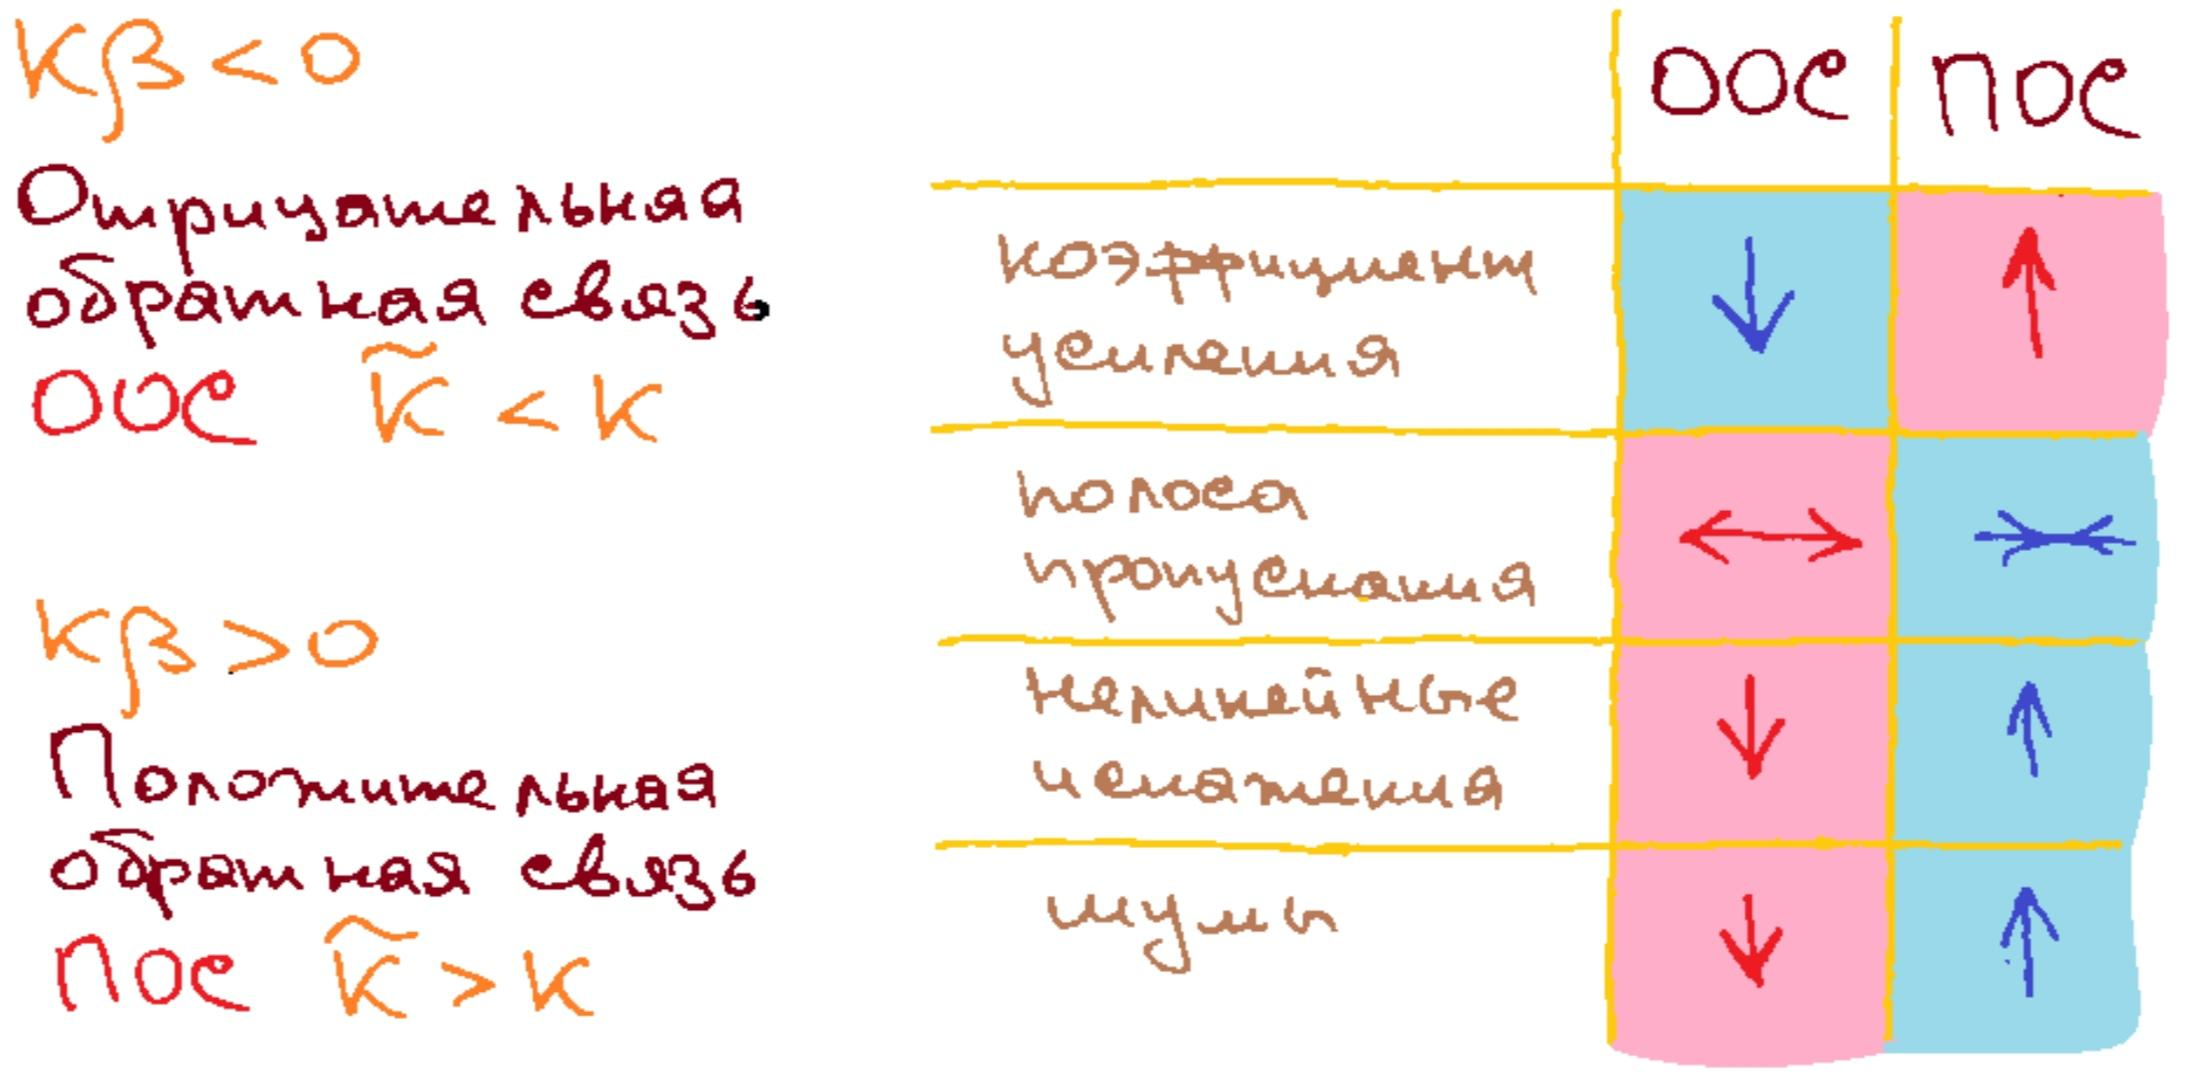 Kβ < 0
Отрицательная
обратная связь
ООС K̃ < K
Kβ > 0
Положительная
обратная связь
ПОС K̃ > K
ООС ПОС
коэффициент ↓ ↑
усиления
полоса ↔ →←
пропускания
нелинейные ↓ ↑
искажения
шумы ↓ ↑